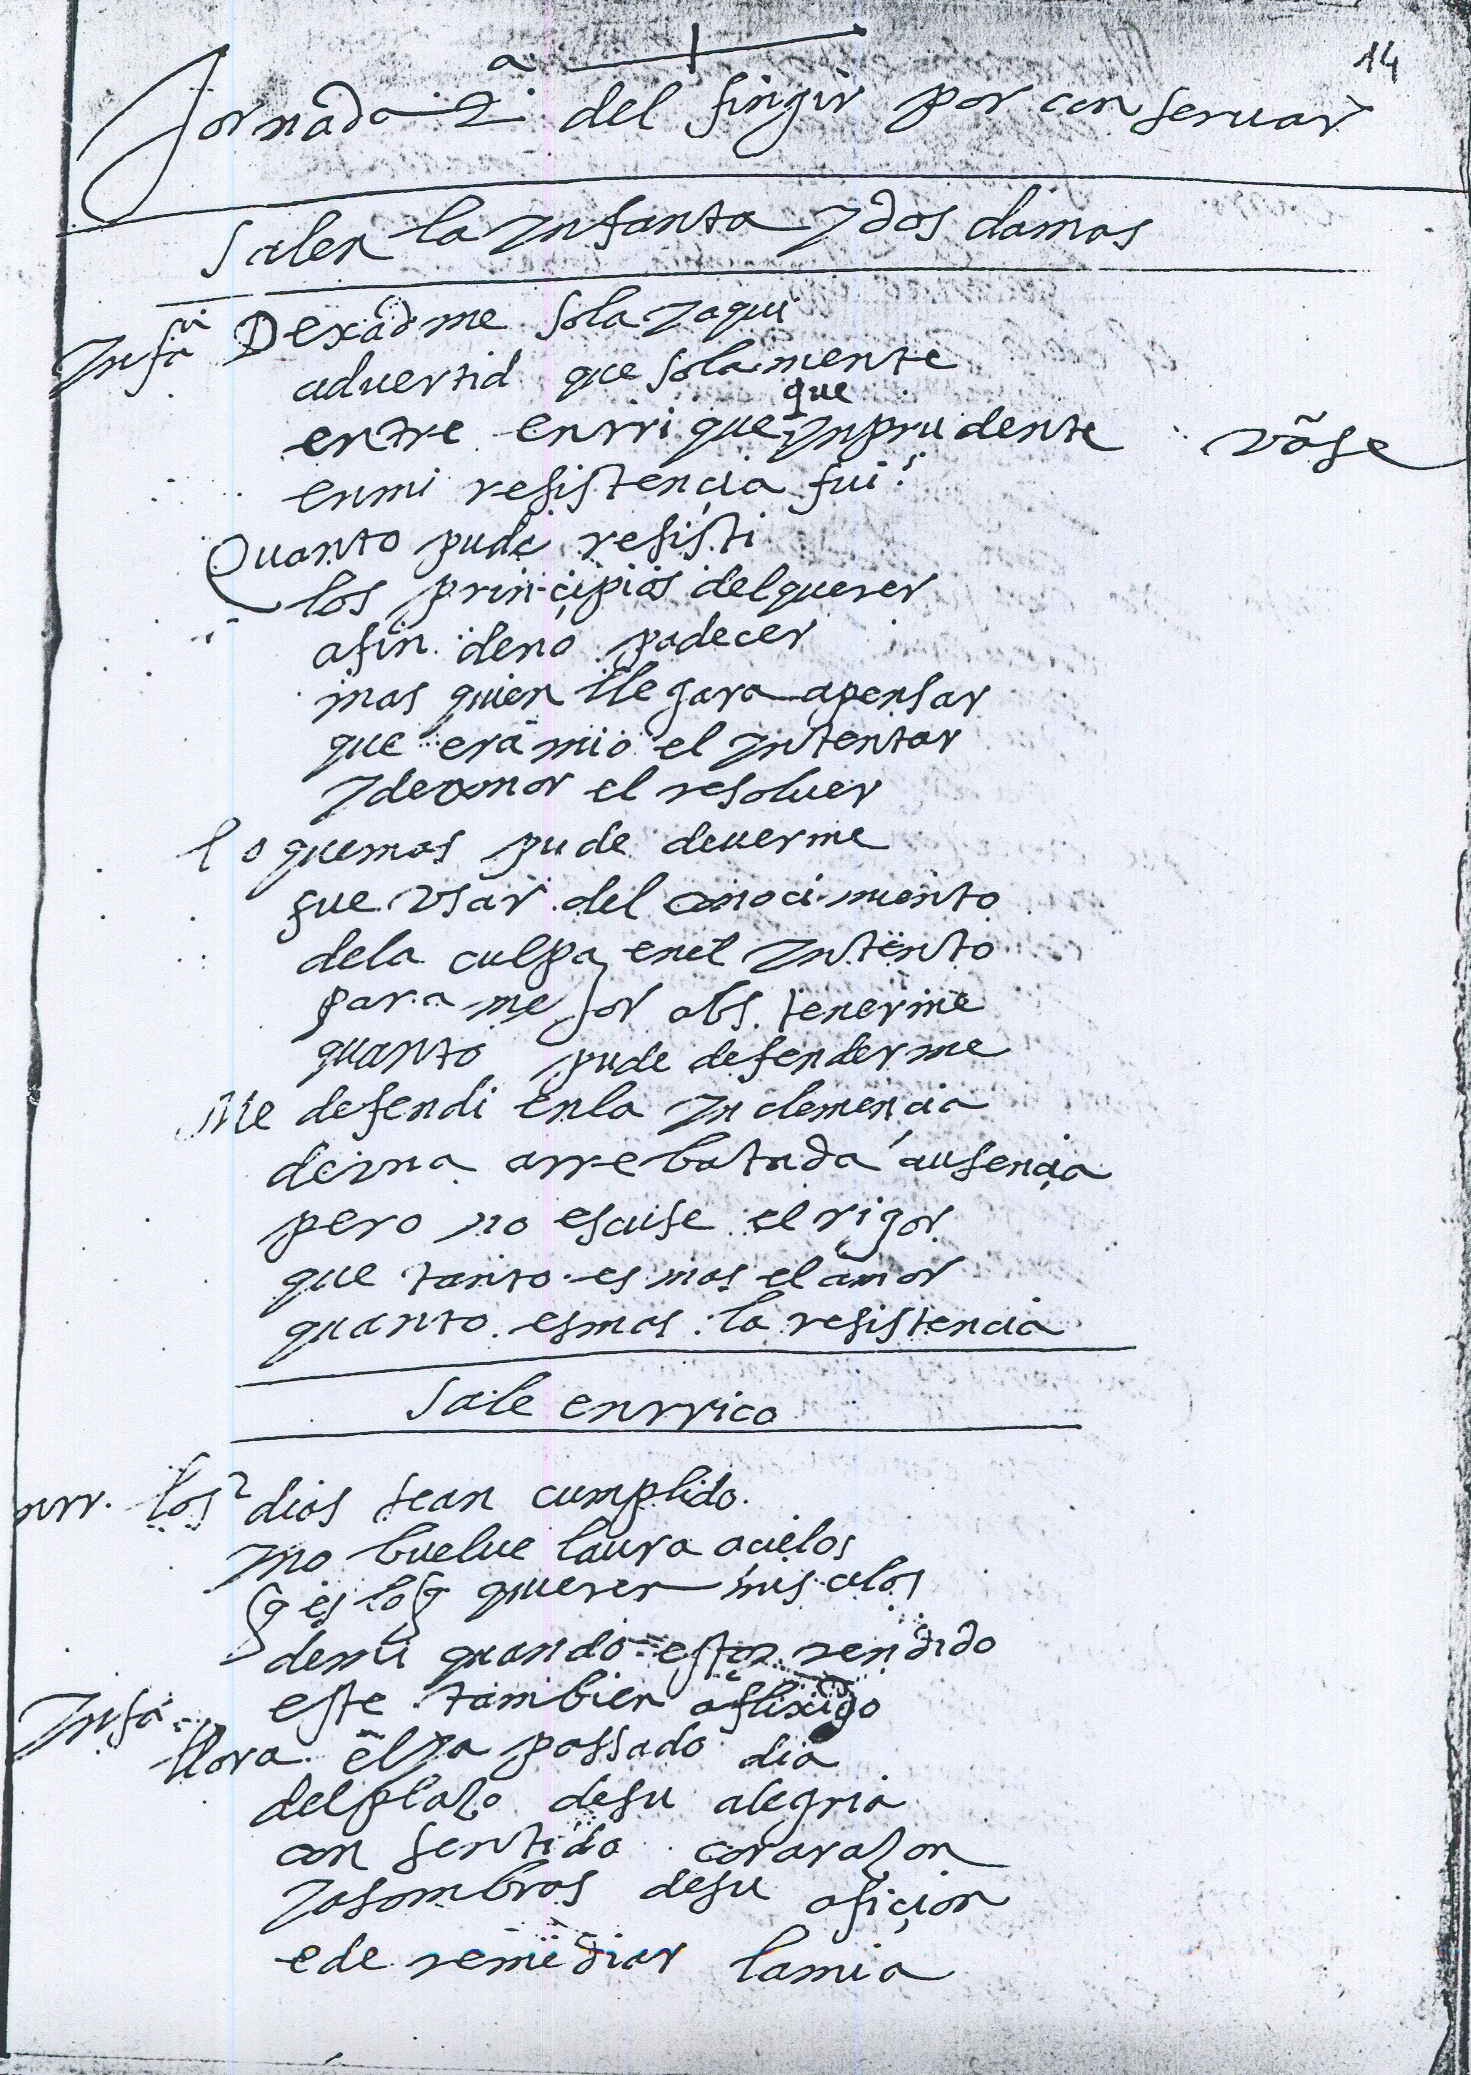 14
Jornada 2ª del fingir por conseruar
Salen la ynfanta y dos damas
ynfª Dexadme sola yaqui
aduertid que solamente
entre enrrique que ynprudente vãse
enmi resistençia fui
Quanto pude resisti
los prinçipios delquerer
afin deno padecer
mas quien llegara apensar
que era mio el yntentar
ydeamor el resoluer
lo quemas pude deuerme
fue vsar del conocimiento
dela culpa enel yntento
para mejor abstenerme
quanto pude defenderme
Me defendi enla ynclemençia
devna arrebatada ausençia
pero no escuse el rigor
que tanto es mas el amor
quanto esmas la resistencia
Sale enrrico
nrr. los 2 dias sean cumplido
yno buelue laura acielos
q es lo q quieren mis celos
demi quando estoy rendido
ynfa. este tambien afligido
llora el ya passado dia
delplaço desu alegria
con sentido coraraçon
yasombros desu afiçion
ede remediar lamia